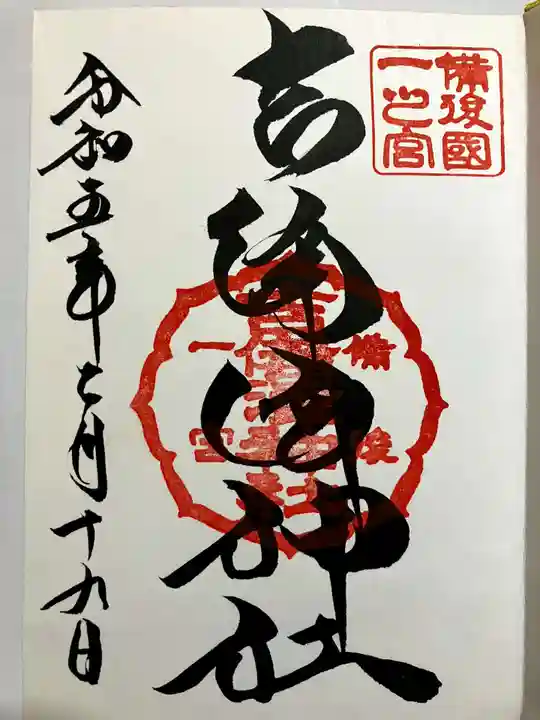 備後國
一之宮
吉備津神社
備後
一宮
令和五年七月十九日